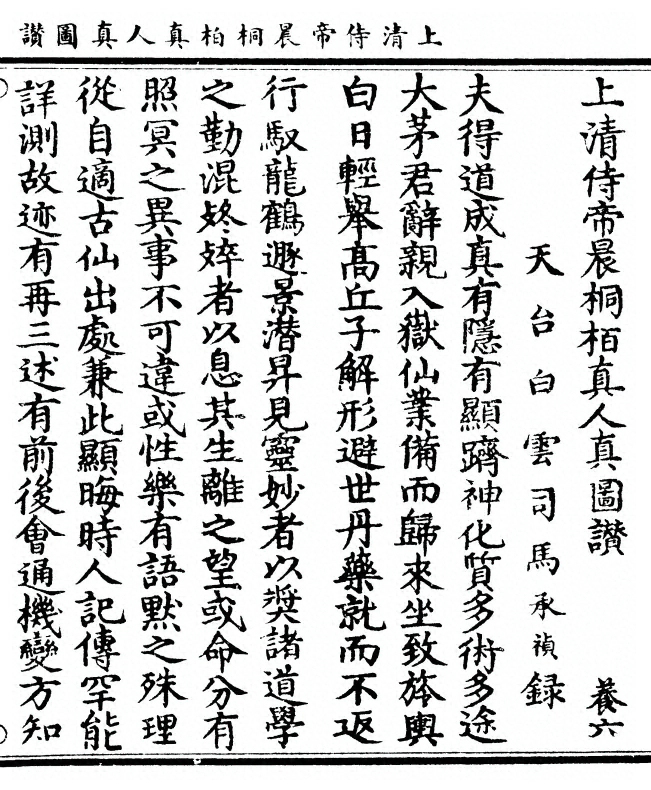 上清侍帝晨桐栢真人真圖讚
上清侍帝晨桐栢真人真圖讚 養六
天台白雲司馬承禎録
夫得道成真有隱有顯躋神化質多術多途
大茅君辭親入嶽仙業備而歸來坐致旍輿
白日輕舉高丘子解形避世丹藥就而不返
行馭龍鶴遯景潜昇見靈妙者以奨諸道學
之勤混終焠者以息其生離之望或命分有
照冥之異事不可違或性樂有語默之殊理
從自適古仙出處兼此顯晦時人記傳罕能
詳測故迹有再三述有前後會通機變方知